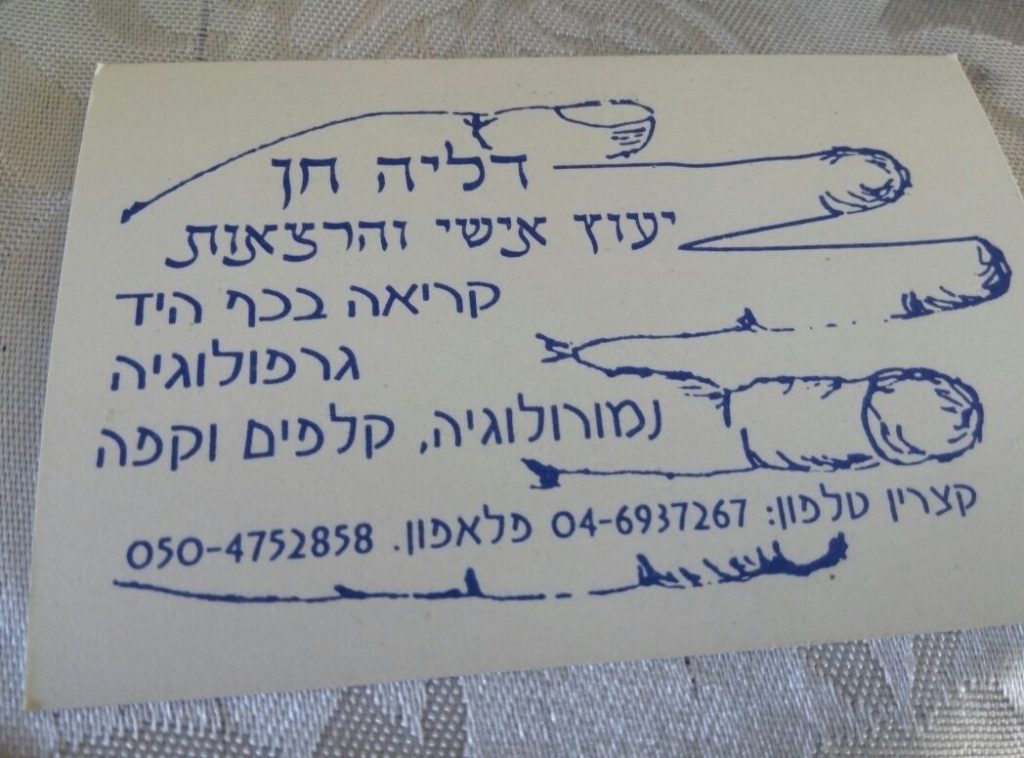 דליה חן
יעוץ אישי והרצאות
קריאה בכף היד
גרפולוגיה
נמורולוגיה, קלפים וקפה
קצרין טלפון: 04-6937267 פלאפון. 050-4752858